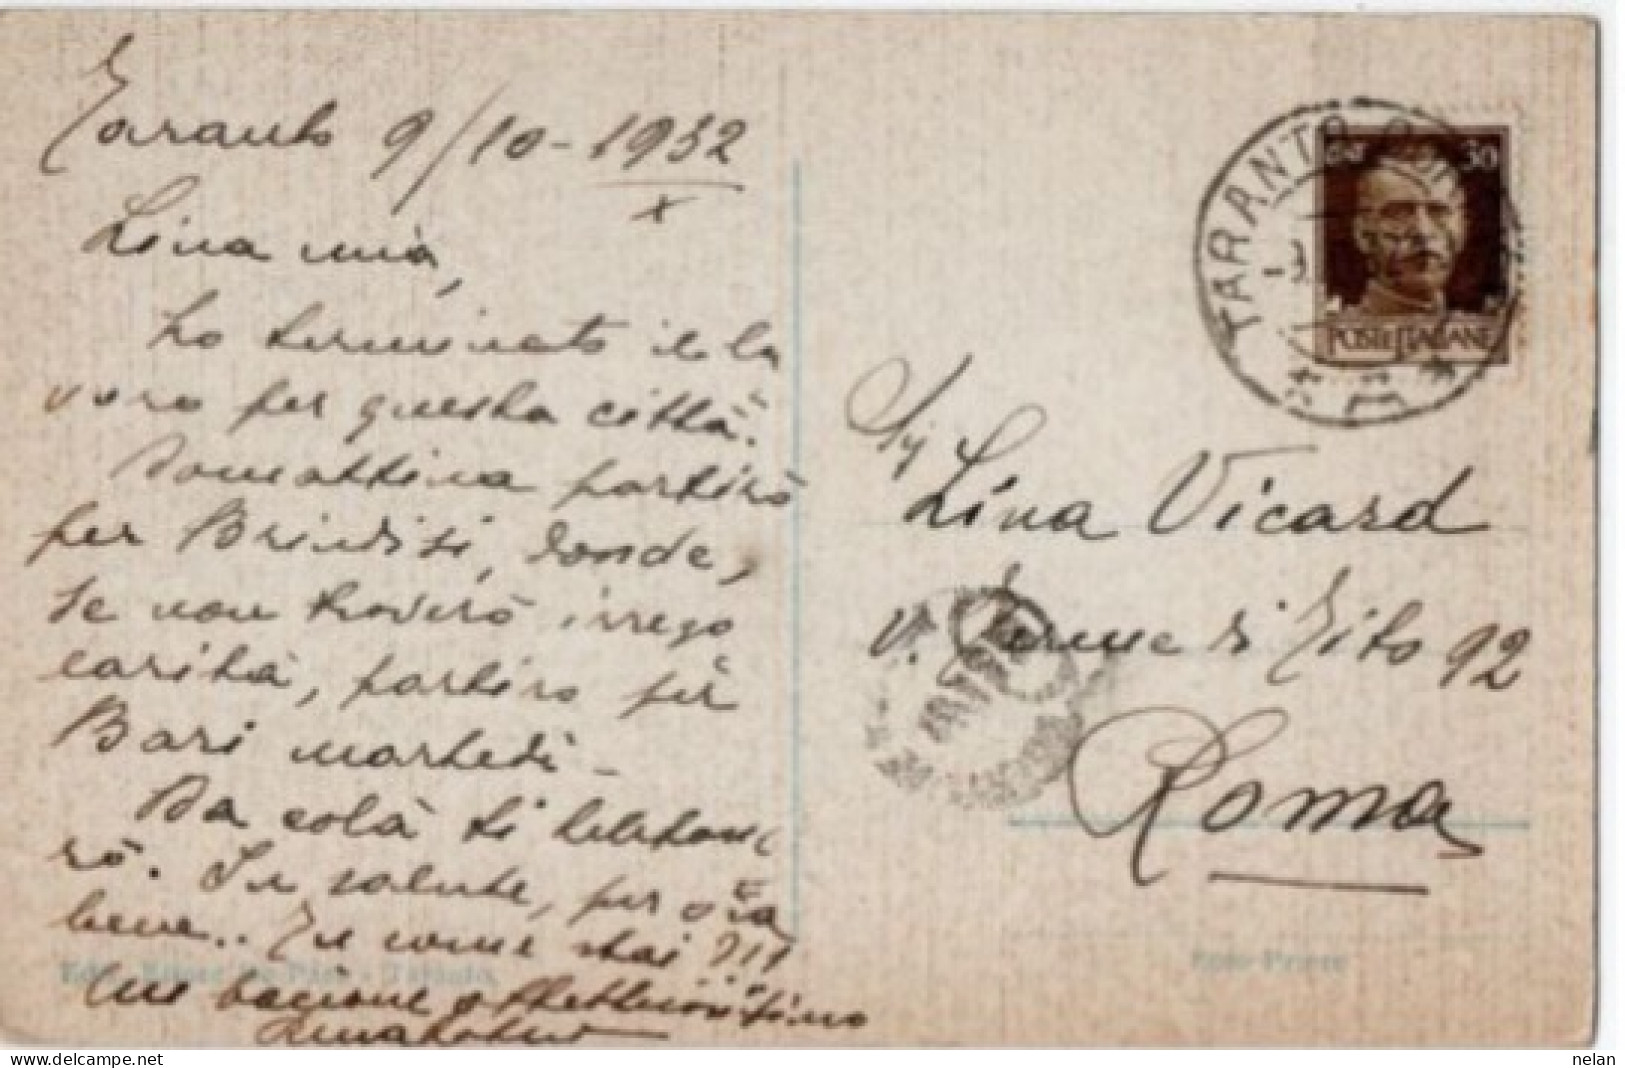 Taranto 9/10-1932
X
Lina mia,
ho terminato il la
voro per questa città.
Domattina partirò
per Brindisi, donde,
se non troverò irrego
larità, partirò per
Bari martedì -
Da colà ti telefone
rò. In salute, per ora,
bene.. Tu come stai ???
Un bacione affettuosissimo
TARANTO
30
POSTE ITALIANE
Sig
Lina Vicard
V. Terme di Tito 92
Roma
Taranto
nelan